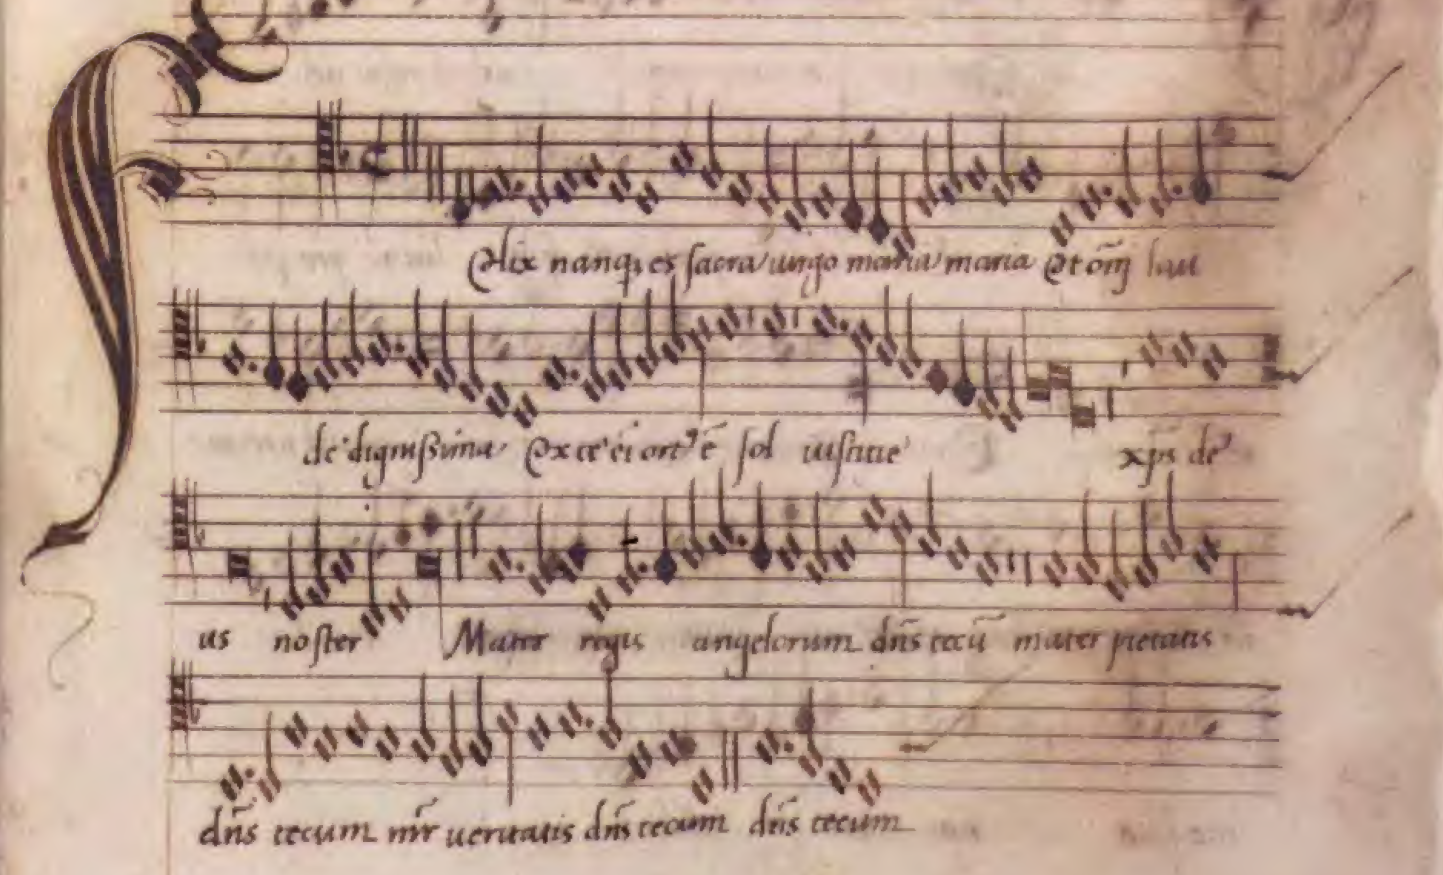 Felix nanq; es sacra uirgo maria maria Et om̄j lau
de dignissima Ex te ei ort9 ē sol iustitie xp̄s de9
us noster Mater regis angelorum dn̄s tecū mater pietatis
dn̄s tecum mr̄ ueritatis dn̄s tecum dn̄s tecum